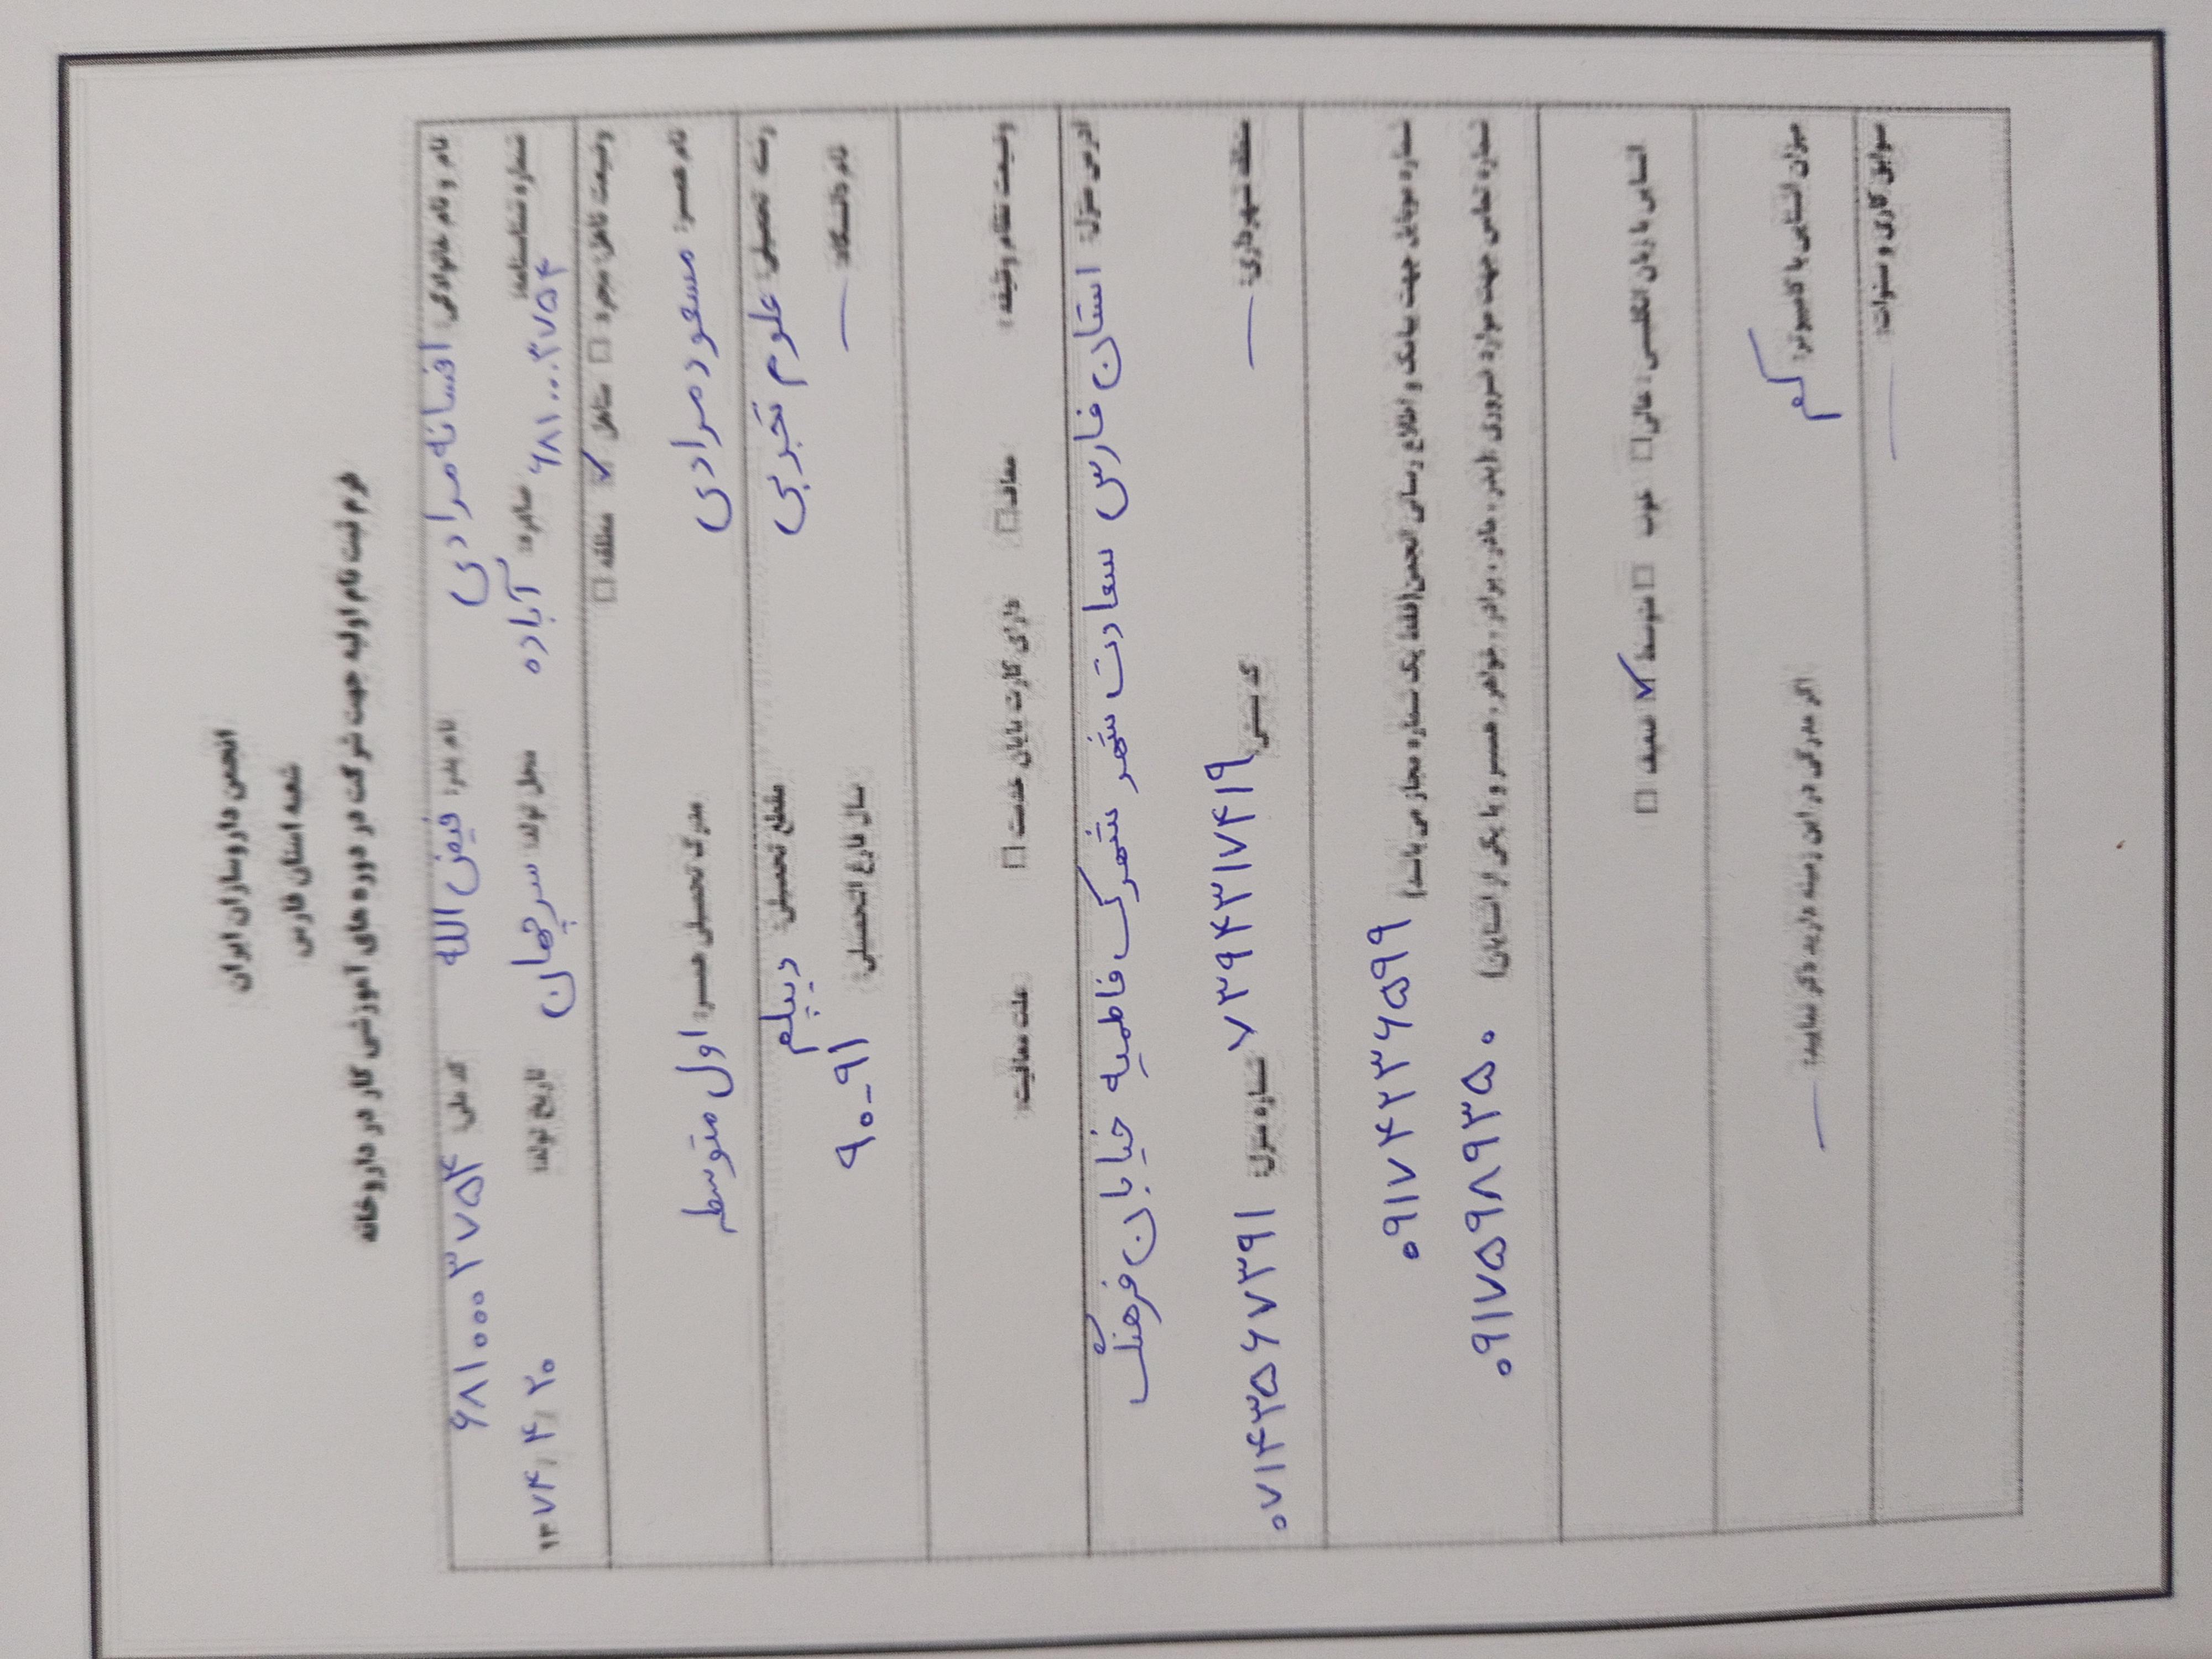 انجمن داروسازان ایران
شعبه استان فارس
فرم ثبت نام اولیه جهت شرکت در دوره های آموزشی کار در داروخانه
نام و نام خانوادگی: افسانه مرادی نام پدر: فیض الله کد ملی: ۶۸۱۰۰۰۳۷۵۴
شماره شناسنامه: ۶۸۱۰۰۰۳۷۵۴ صادره: آباده محل تولد: سرچهان تاریخ تولد: ۱۳۷۴/۴/۲۰
وضیعت تاهل: مجرد □ متاهل ✓ مطلقه □
نام همسر: مسعود مرادی مدرک تحصیلی همسر: اول متوسطه
رشته تحصیلی: علوم تجربی مقطع تحصیلی: دیپلم
نام دانشگاه: — سال فارغ التحصیلی: ۹۰-۹۱
وضیعت نظام وظیفه: معاف □ دارای کارت پایان خدمت □ علت معافیت:
آدرس منزل: استان فارس سعادت شهر شهرک فاطمیه خیابان فرهنگ
منطقه شهرداری: — کد پستی: ۷۳۹۴۳۱۷۴۱۹ شماره منزل: ۰۷۱۴۳۵۶۷۳۹۱
شماره موبایل جهت پیامک و اطلاع رسانی انجمن(فقط یک شماره مجاز می باشد) ۰۹۱۷۴۲۳۶۵۹۹
شماره تماس جهت موارد ضروری (پدر، مادر، برادر، خواهر، همسر و یا یکی از آشنایان) ۰۹۱۷۵۹۸۹۳۵۰
آشنایی با زبان انگلیسی: عالی □ خوب □ متوسط ✓ ضعیف □
میزان آشنایی با کامپیوتر: کم اگر مدرکی در این زمینه دارید ذکر نمایید: —
سوابق کاری و سنوات: —